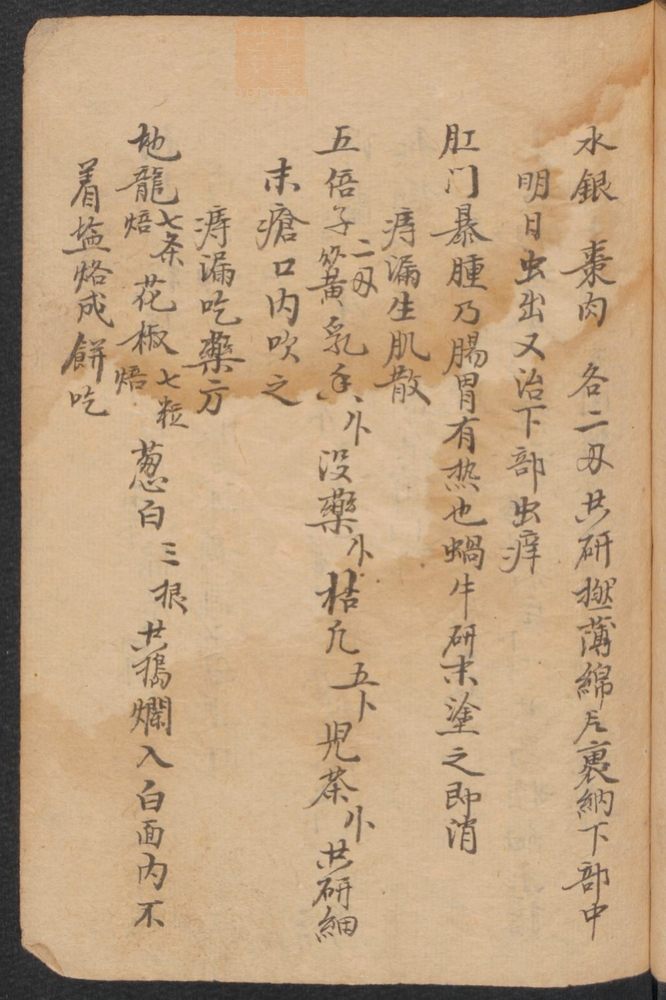 水銀 棗肉 各二刄共研撚薄綿片裹納下部中
明日虫出又治下部虫痒
肛门暴腫乃腸胃有热也蝸牛研末塗之即消
痔漏生肌散
五倍子二刄 黄 乳香 没藥 枯凡五卜児茶 共研細
末瘡口内吹之
痔漏吃藥方
地龍七条焙花椒七粒焙葱白三根共搗爛入白面内不
着塩烙成餅吃